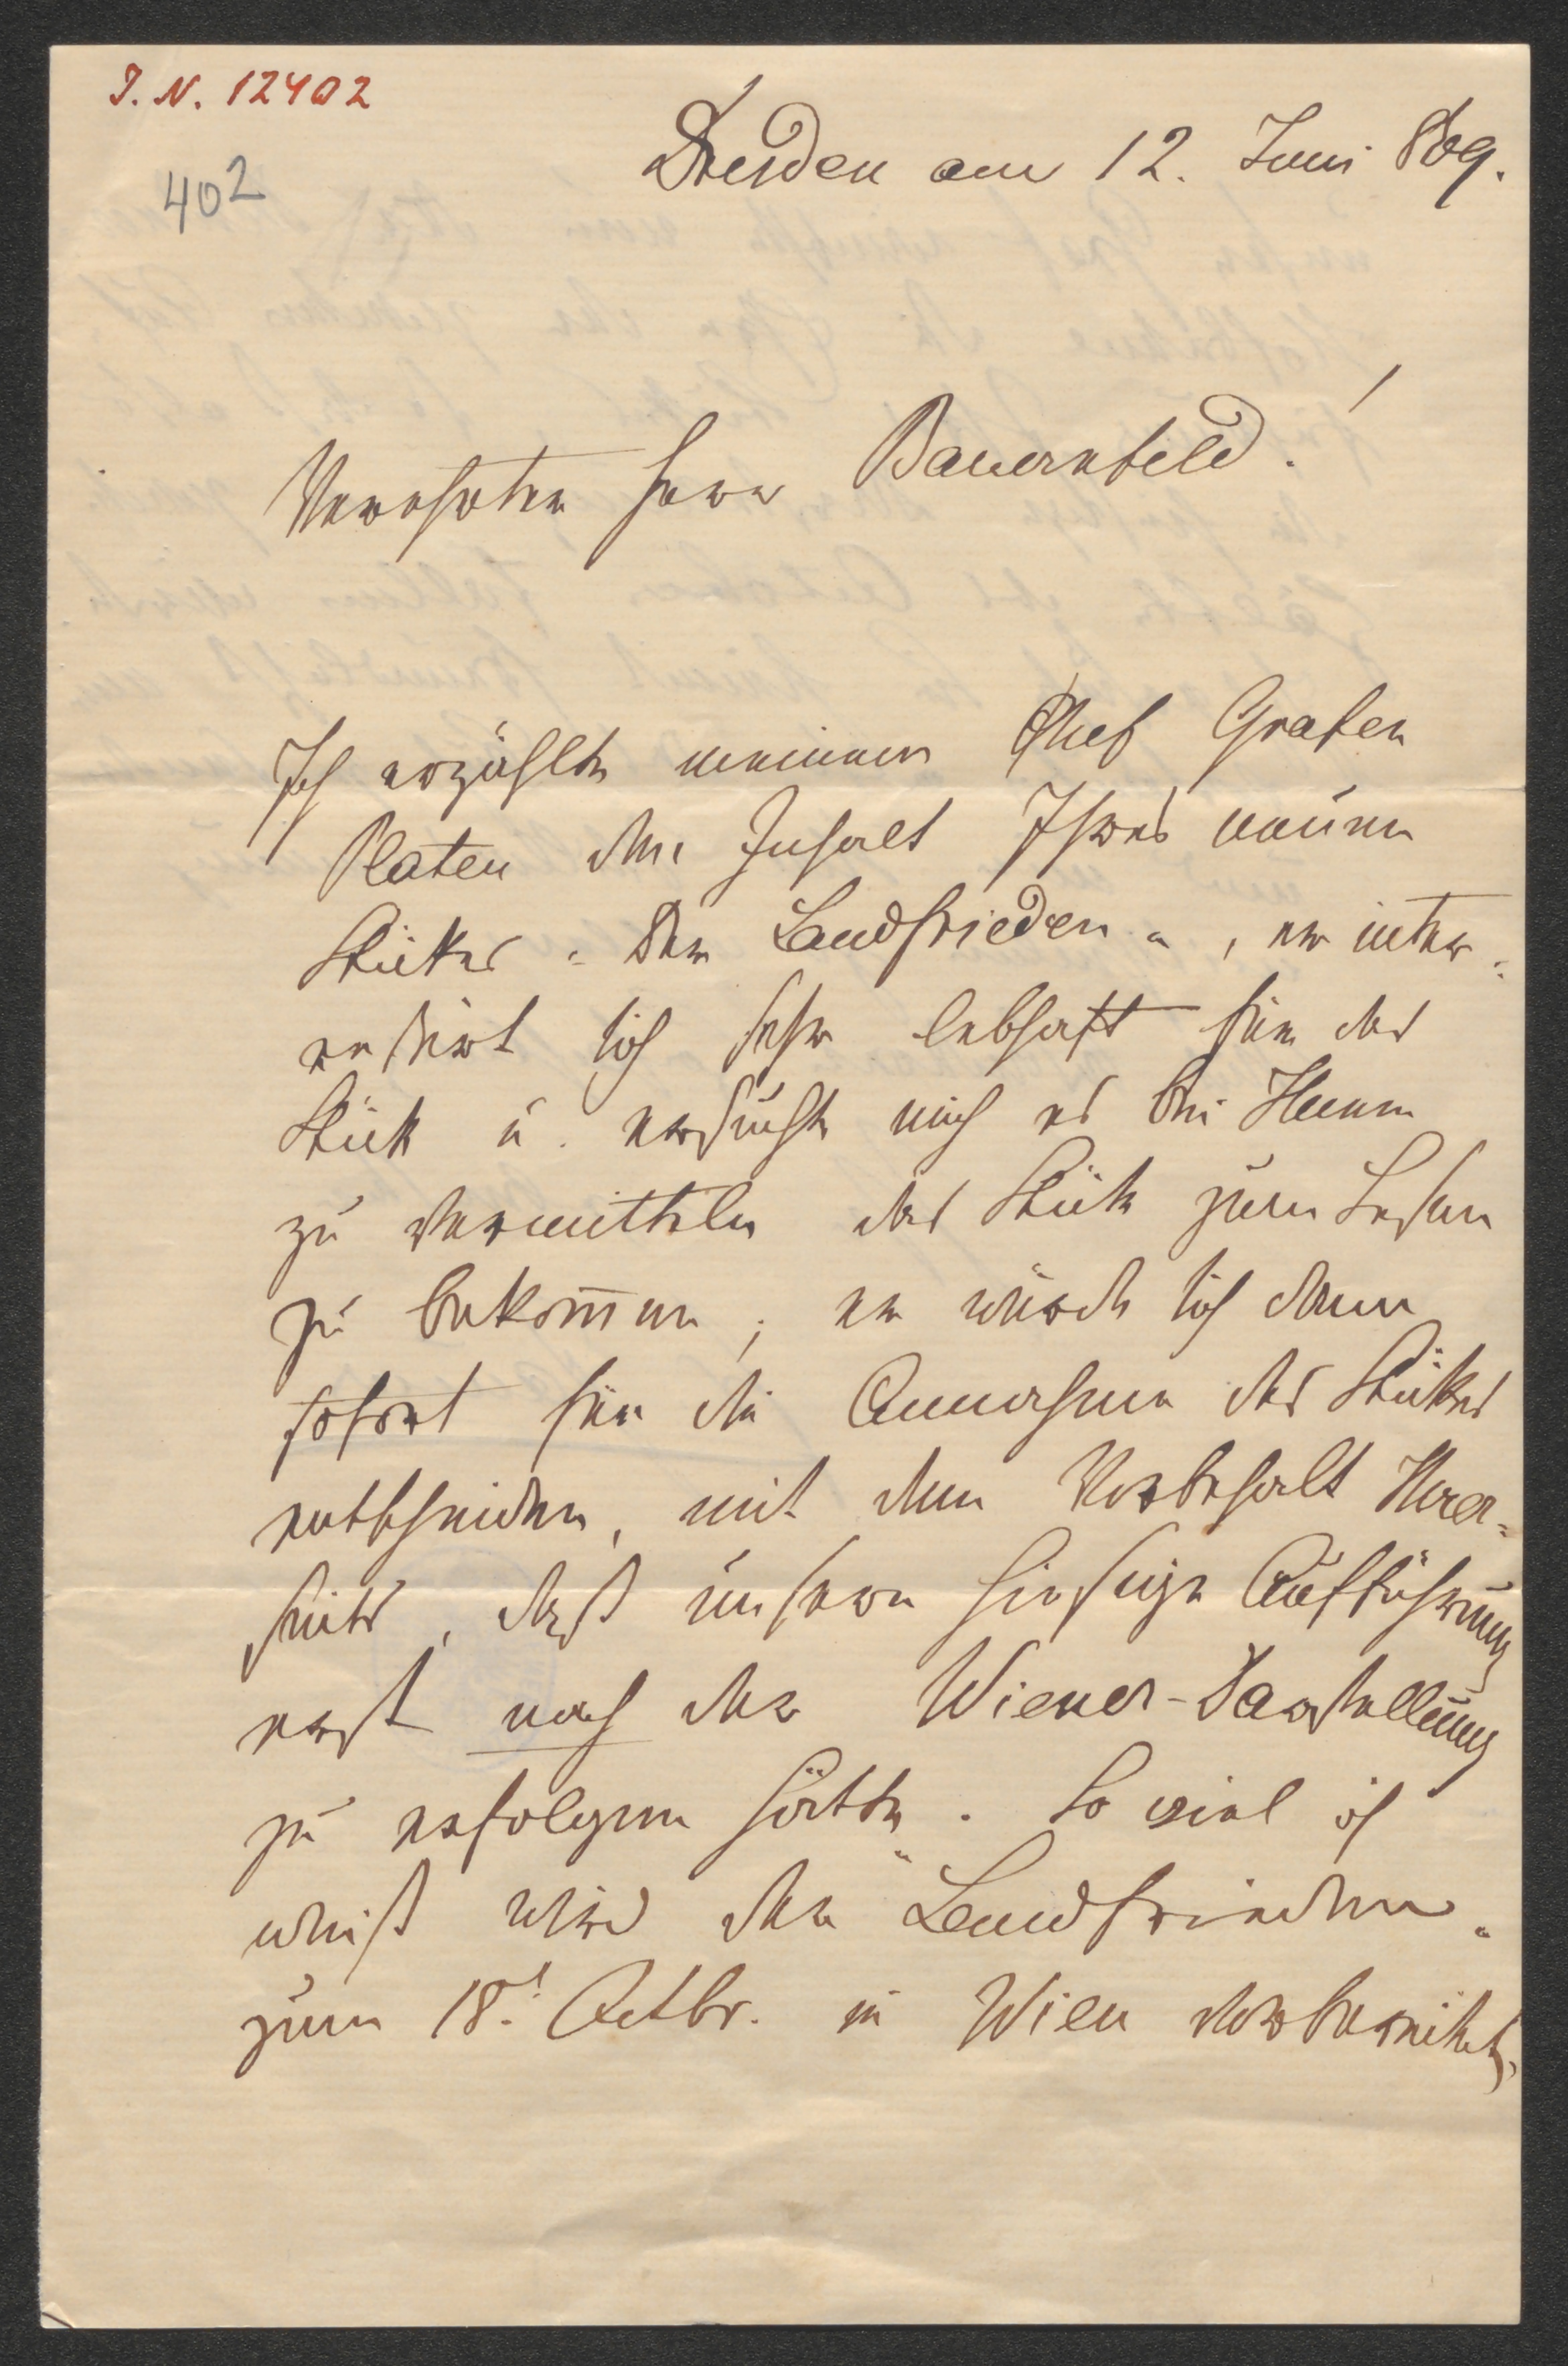 J. N. 12402
402
Dresden am 12. Juni 869.
Verehrter Herr Bauernfeld!
Ich erzählte meinem Chef Grafen
Platen den Inhalt Ihres neuen
Stückes "Der Landfrieden", er inter=
essirt sich sehr lebhaft für das
Stück u. ersucht mich es bei Ihnen
zu vermitteln das Stück zum Lesen
zu bekom̄en; er würde sich dann
sofort für die Annahme des Stückes
entscheiden, mit dem Vorbehalt Ihrer=
seits, daß unsere hiesige Aufführung
erst nach der Wiener-Darstellung
zu erfolgen hätte. So viel ich
weiß wird der "Landfrieden"
zum 18t. Octbr. in Wien vorbereitet,